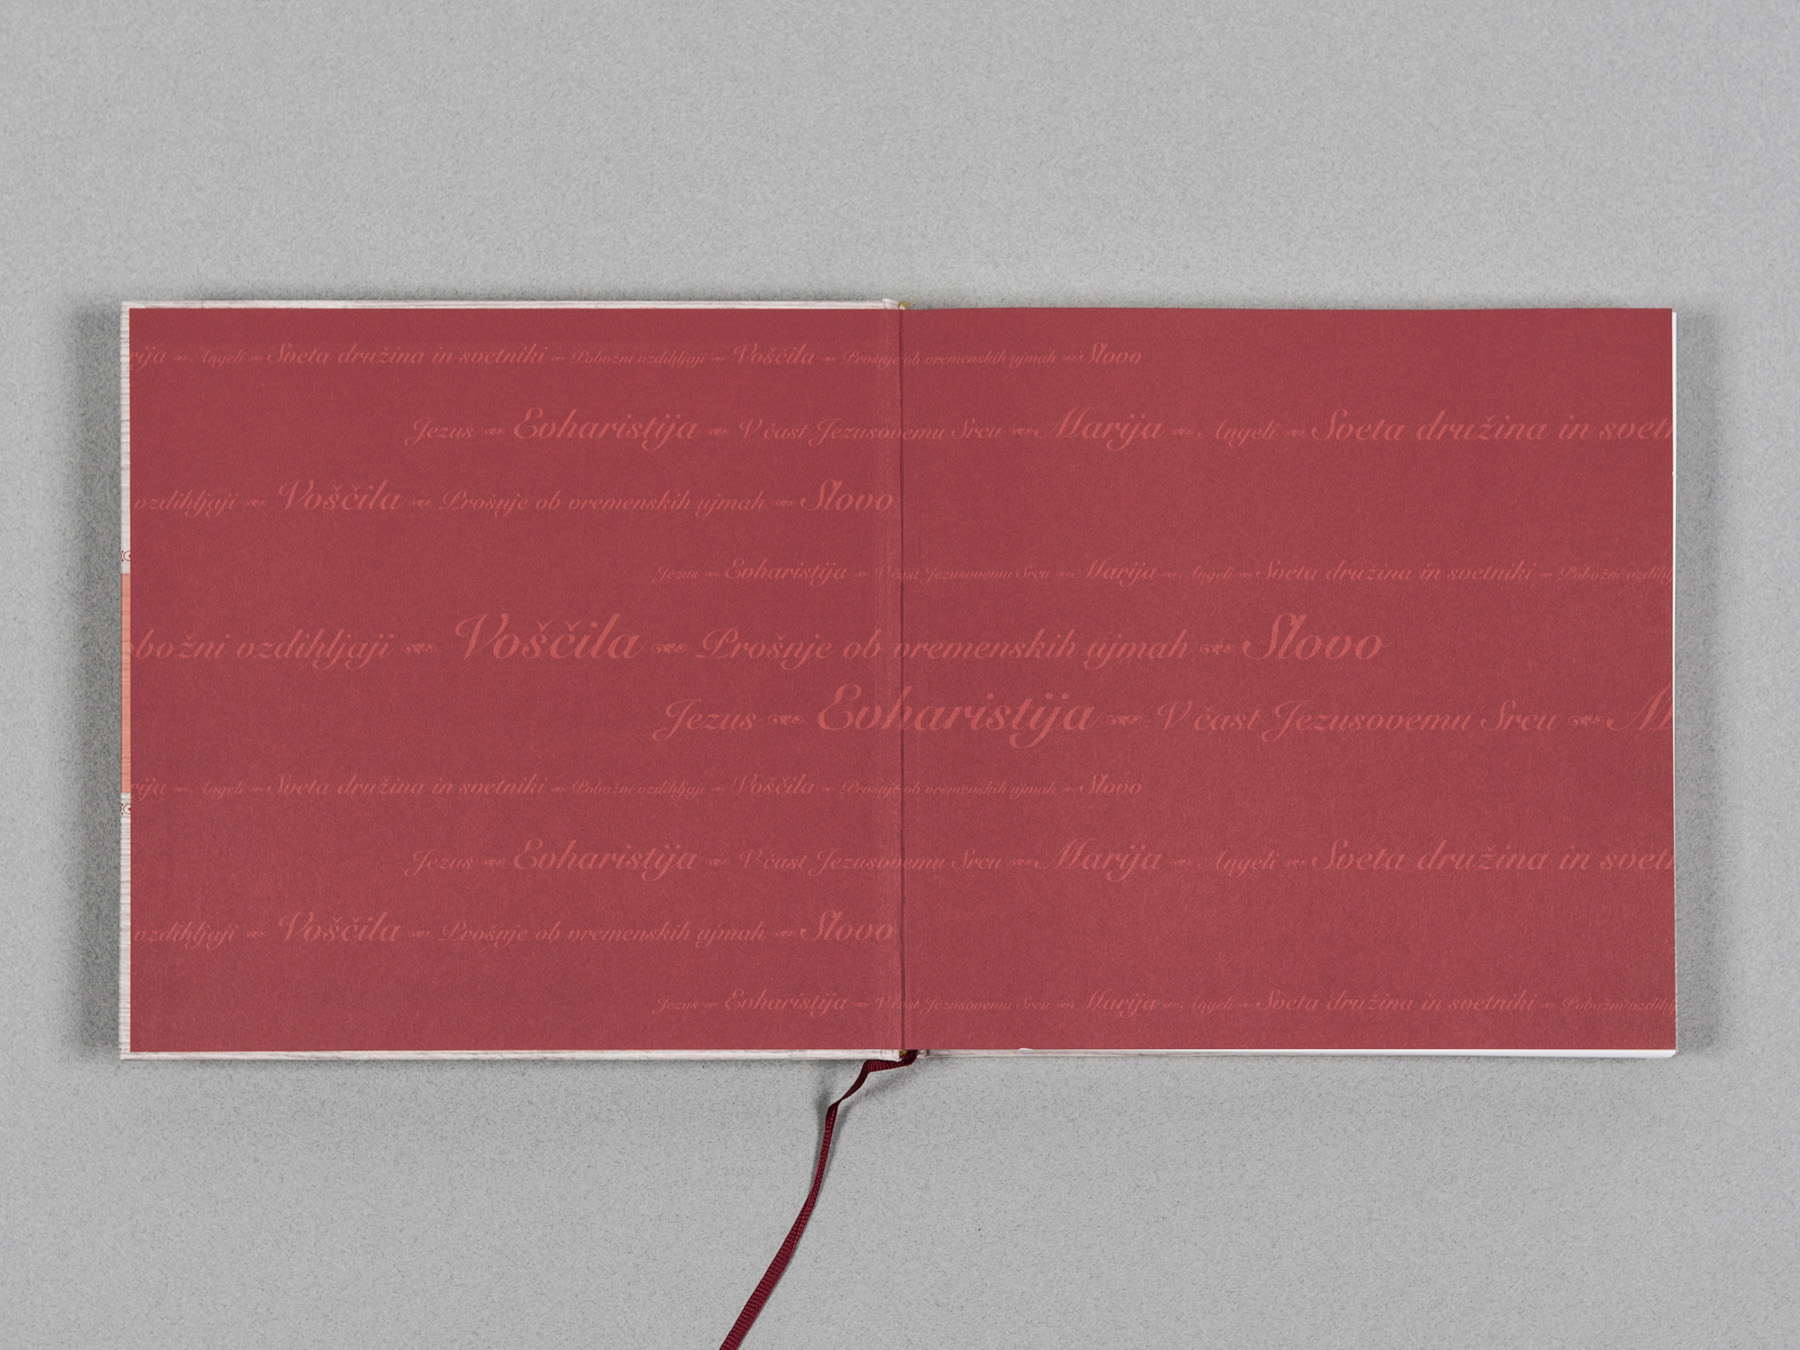 rija Angeli Sveta družina in svetniki Pobožni vzdihljaji Voščila Prošnje ob vremenskih ujmah Slovo
Jezus Evharistija V čast Jezusovemu Srcu Marija Angeli Sveta družina in svetn
vzdihljaji Voščila Prošnje ob vremenskih ujmah Slovo
Jezus Evharistija V čast Jezusovemu Srcu Marija Angeli Sveta družina in svetniki Pobožni vzdihlj
obožni vzdihljaji Voščila Prošnje ob vremenskih ujmah Slovo
Jezus Evharistija V čast Jezusovemu Srcu M
rija Angeli Sveta družina in svetniki Pobožni vzdihljaji Voščila Prošnje ob vremenskih ujmah Slovo
Jezus Evharistija V čast Jezusovemu Srcu Marija Angeli Sveta družina in svetn
vzdihljaji Voščila Prošnje ob vremenskih ujmah Slovo
Jezus Evharistija V čast Jezusovemu Srcu Marija Angeli Sveta družina in svetniki Pobožni vzdihlj